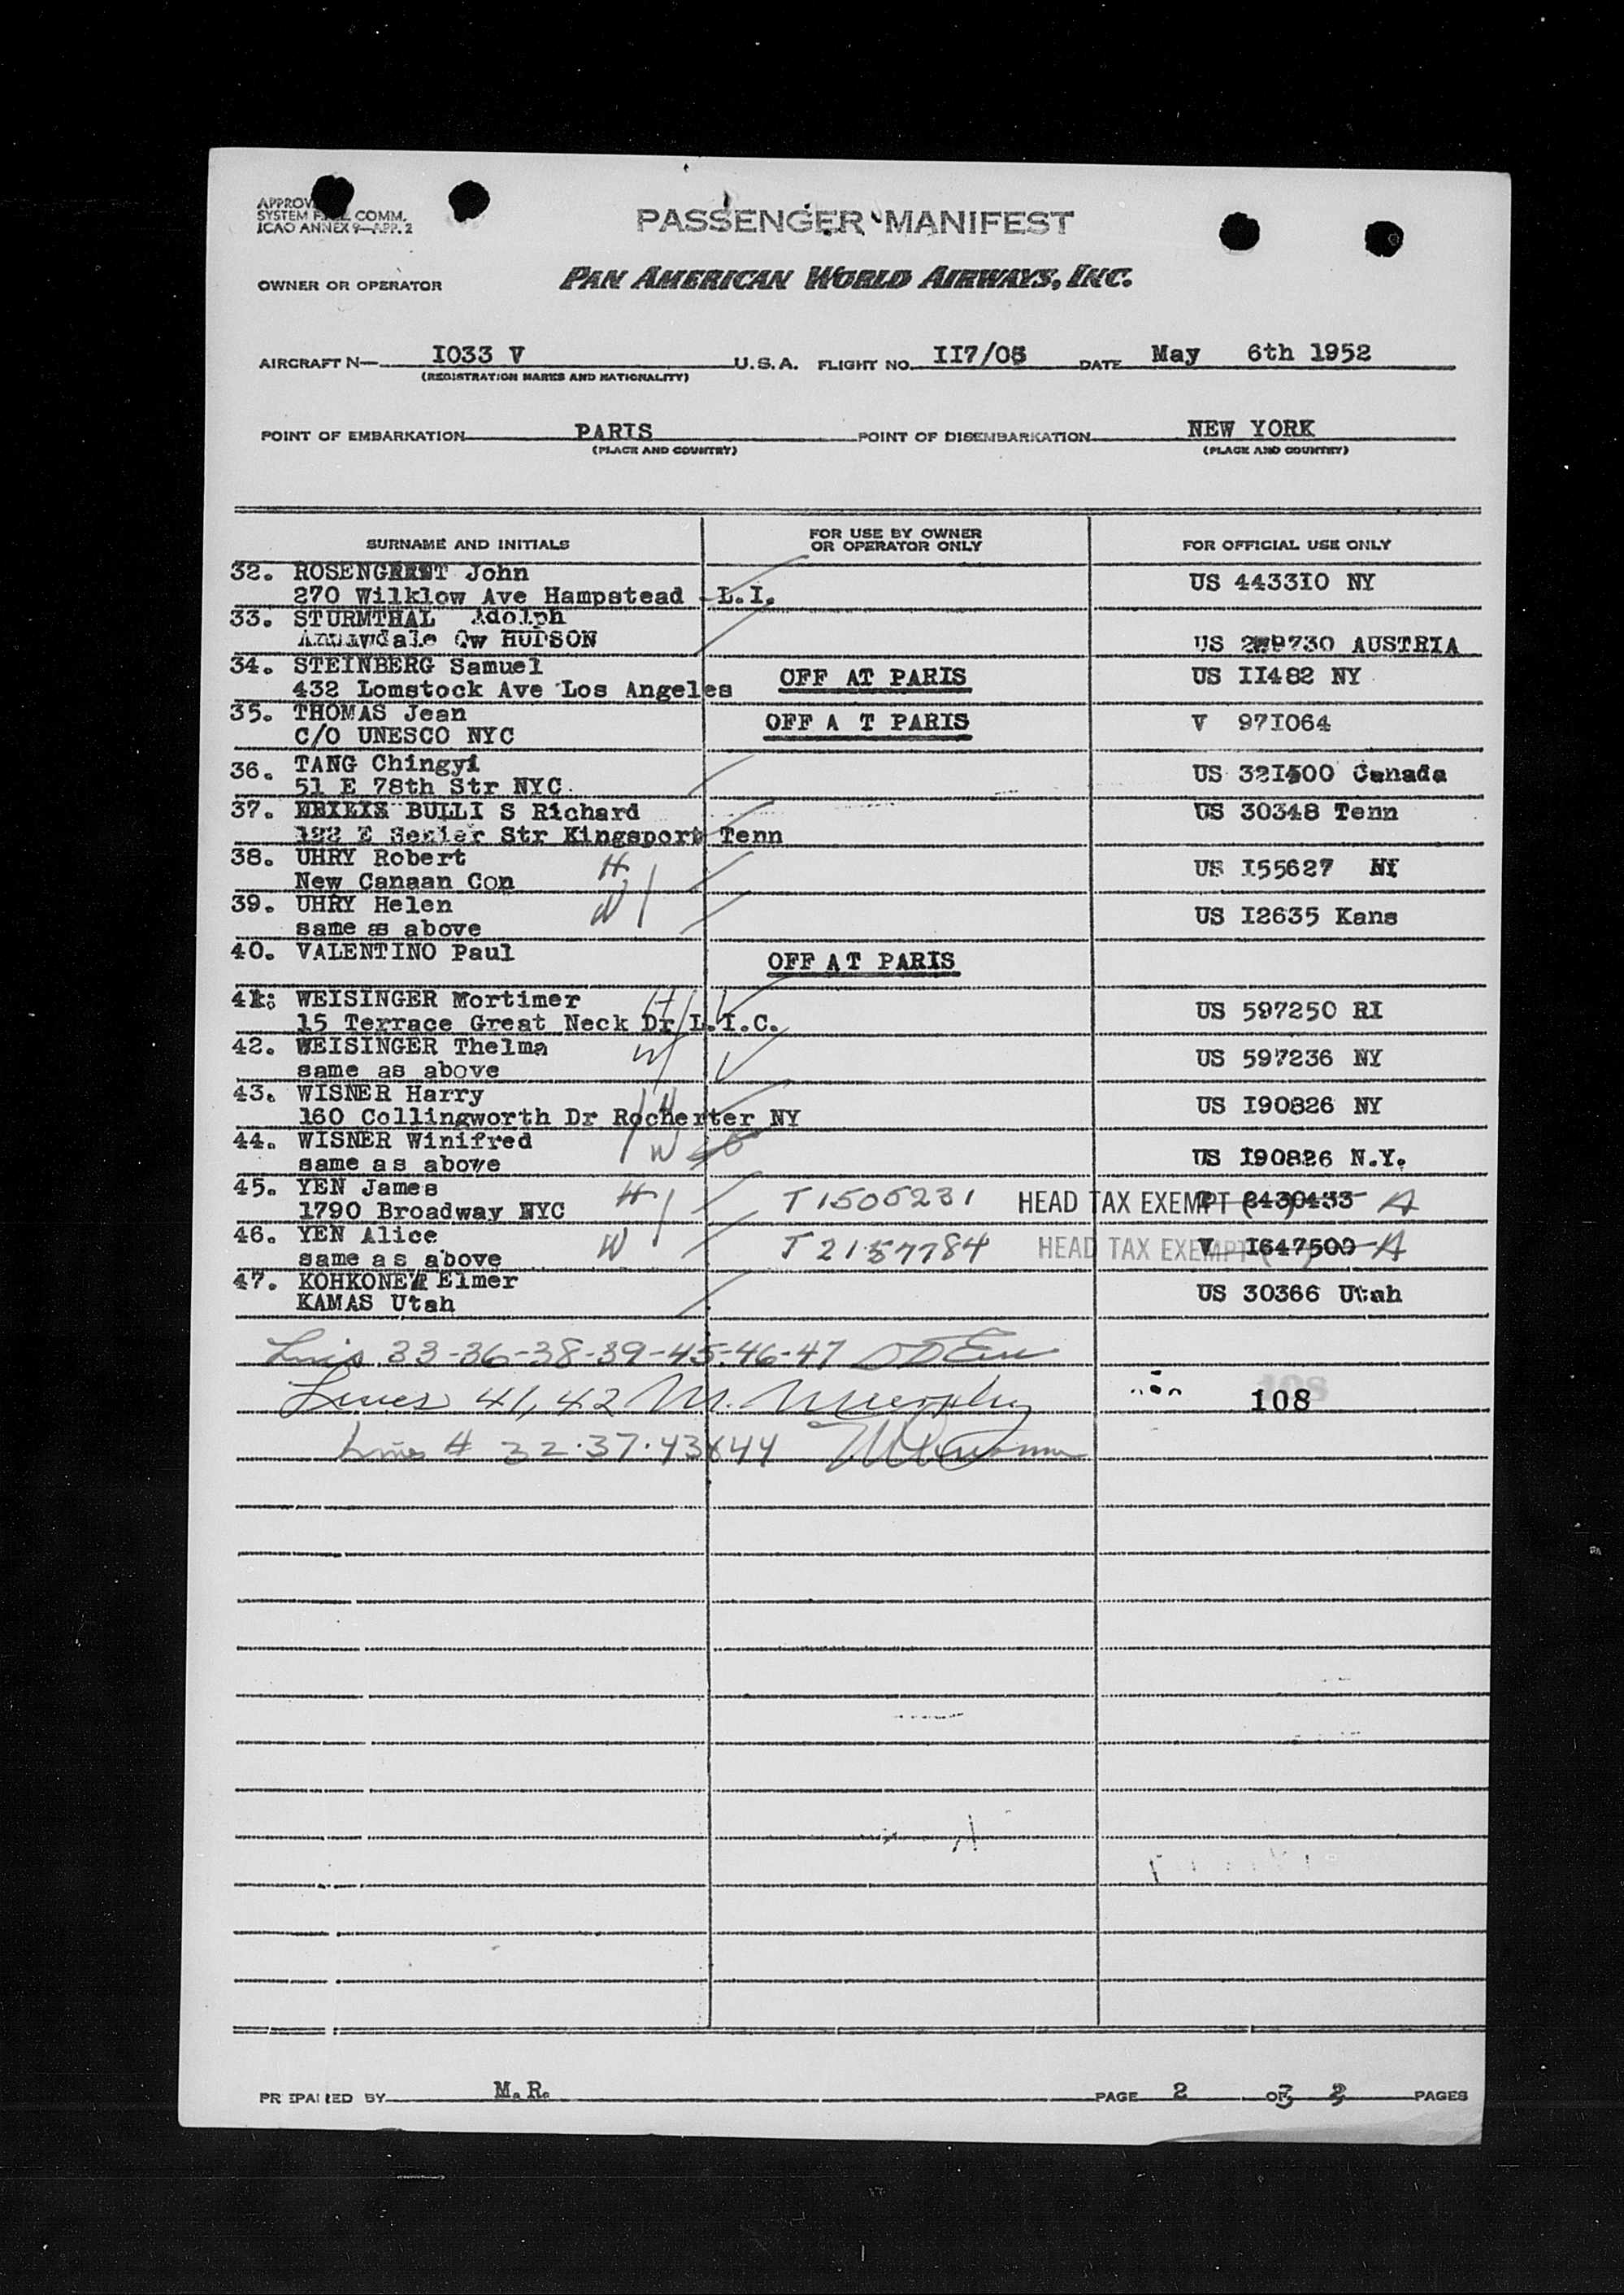 PASSENGER MANIFEST
SYSTEM COMM.
ICAO ANNEX 9—APP. 2
OWNER OR OPERATOR PAN AMERICAN WORLD AIRWAYS, INC.
AIRCRAFT N— I033 V U.S.A. FLIGHT NO. II7/05 DATE May 6th 1952
(REGISTRATION MARKS AND NATIONALITY)
POINT OF EMBARKATION PARIS POINT OF DISEMBARKATION NEW YORK
(PLACE AND COUNTRY) (PLACE AND COUNTRY)
SURNAME AND INITIALS FOR USE BY OWNER OR OPERATOR ONLY FOR OFFICIAL USE ONLY
32. John
270 Wilklow Ave Hampstead L.I. US 4433I0 NY
33. STURMTHAL Adolph
HUDSON US AUSTRIA
34. STEINBERG Samuel
432 Lomstock Ave Los Angeles OFF AT PARIS US II482 NY
35. THOMAS Jean
C/O UNESCO NYC OFF A T PARIS V 97I064
36. TANG Chingyi
51 E 78th Str NYC. US Canada
37. BULLI S Richard
E Str Kingsport Tenn US 30348 Tenn
38. UHRY Robert H
New Canaan Con US I55627
39. UHRY Helen W
same as above US I2635 Kans
40. VALENTINO Paul OFF AT PARIS
41: WEISINGER Mortimer H
15 Terrace Great Neck Dr L.I.C. US 597250 RI
42. WEISINGER Thelma W
same as above US 597236 NY
43. WISNER Harry H
160 Collingworth Dr Rocherter NY US I90826 NY
44. WISNER Winifred W
same as above US I90826 N.Y.
45. YEN James H
1790 Broadway NYC T1505231 HEAD TAX EXEMPT 2430433 A
46. YEN Alice W
same as above T2157784 HEAD TAX EXEMPT V I647500 A
47. Elmer
KAMAS Utah US 30366 Utah
33-36-38-39-45-46-47
Lines 41, 42 M. Murphy
108
Lines # 32·37·43&44
PREPARED BY M.R. PAGE 2 OF 3 PAGES